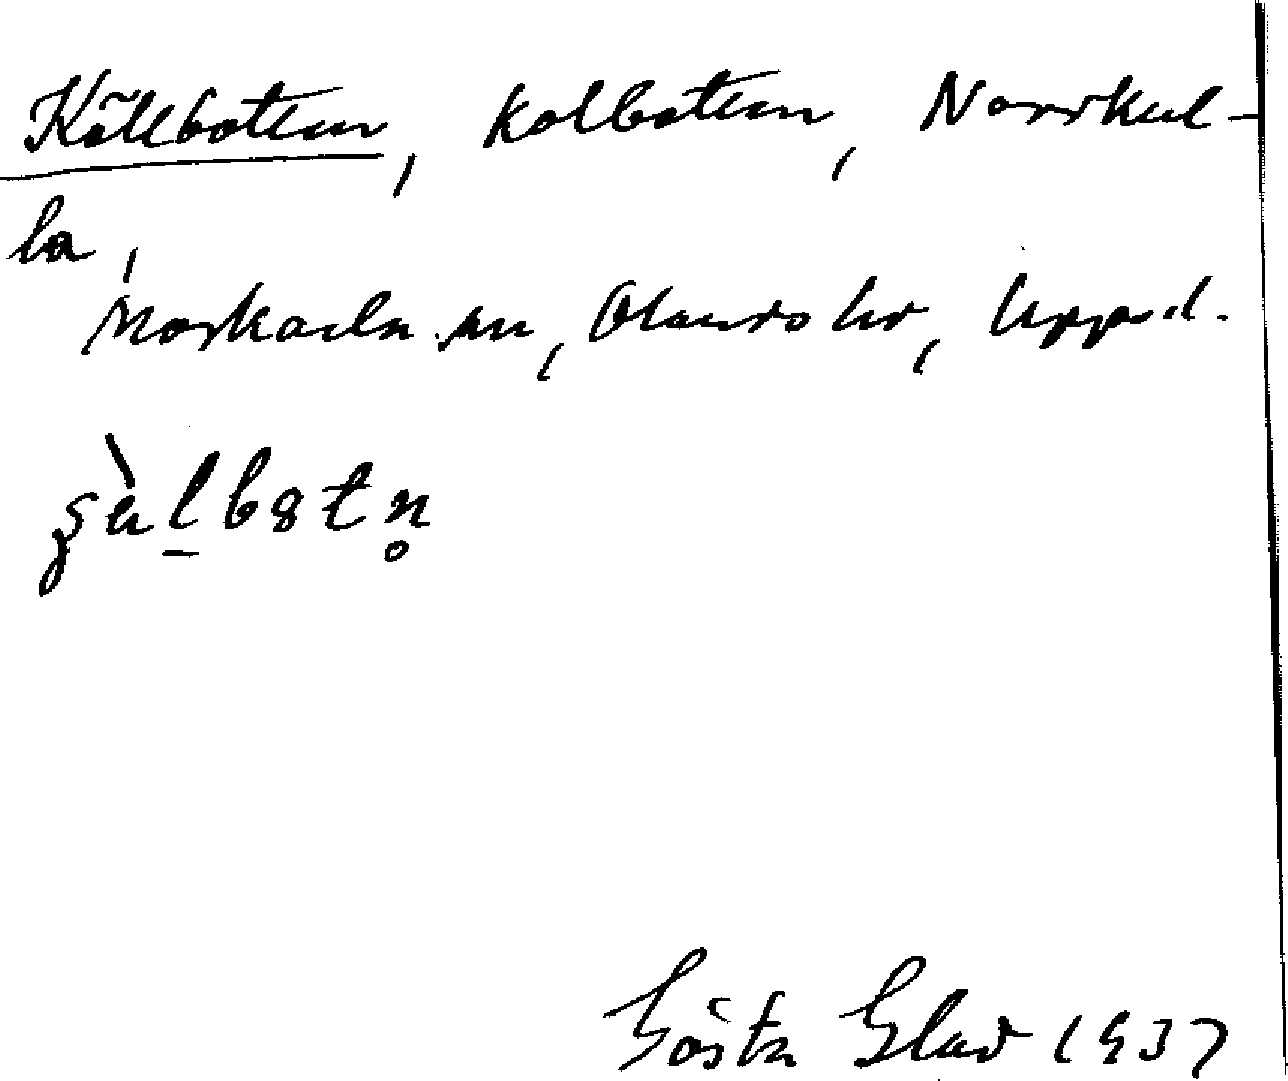 Källbotten, kolbotten, Norrkul-
la,
Morkarla sn, Olands hd, Uppsl.
Gösta Glad 1937